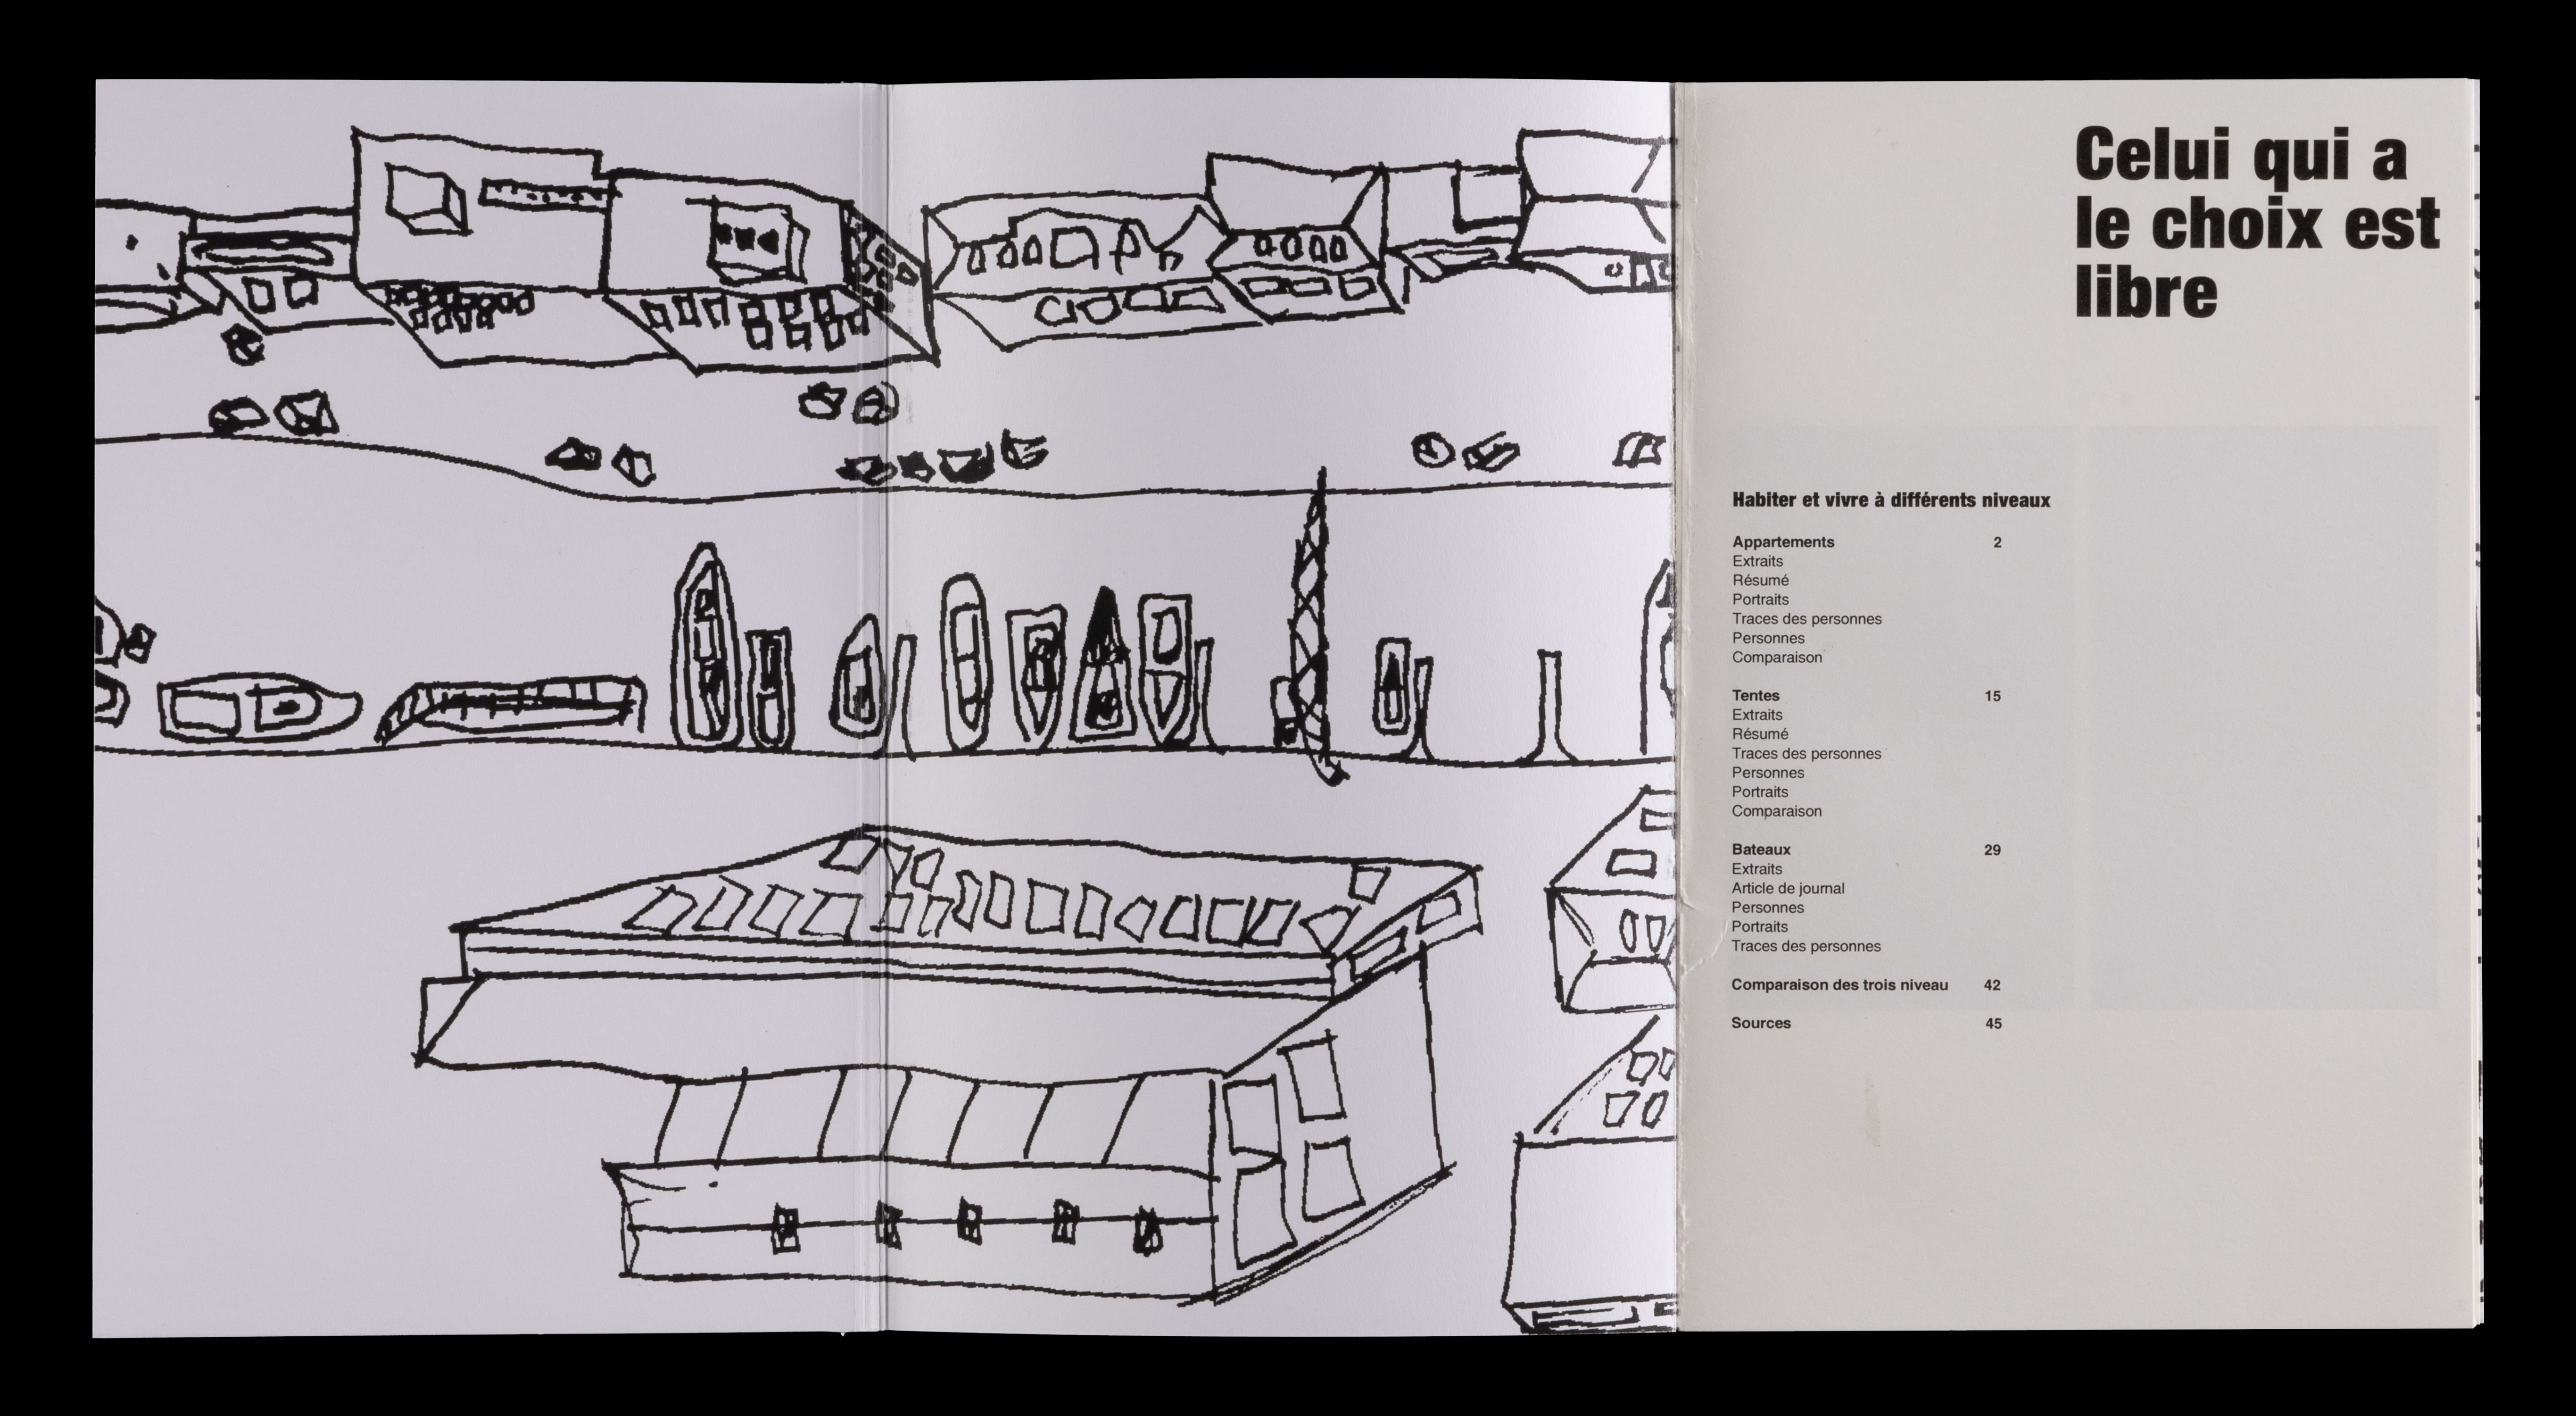 Celui qui a
le choix est
libre
Habiter et vivre à différents niveaux
Appartements 2
Extraits
Résumé
Portraits
Traces des personnes
Personnes
Comparaison
Tentes 15
Extraits
Résumé
Traces des personnes
Personnes
Portraits
Comparaison
Bateaux 29
Extraits
Article de journal
Personnes
Portraits
Traces des personnes
Comparaison des trois niveau 42
Sources 45